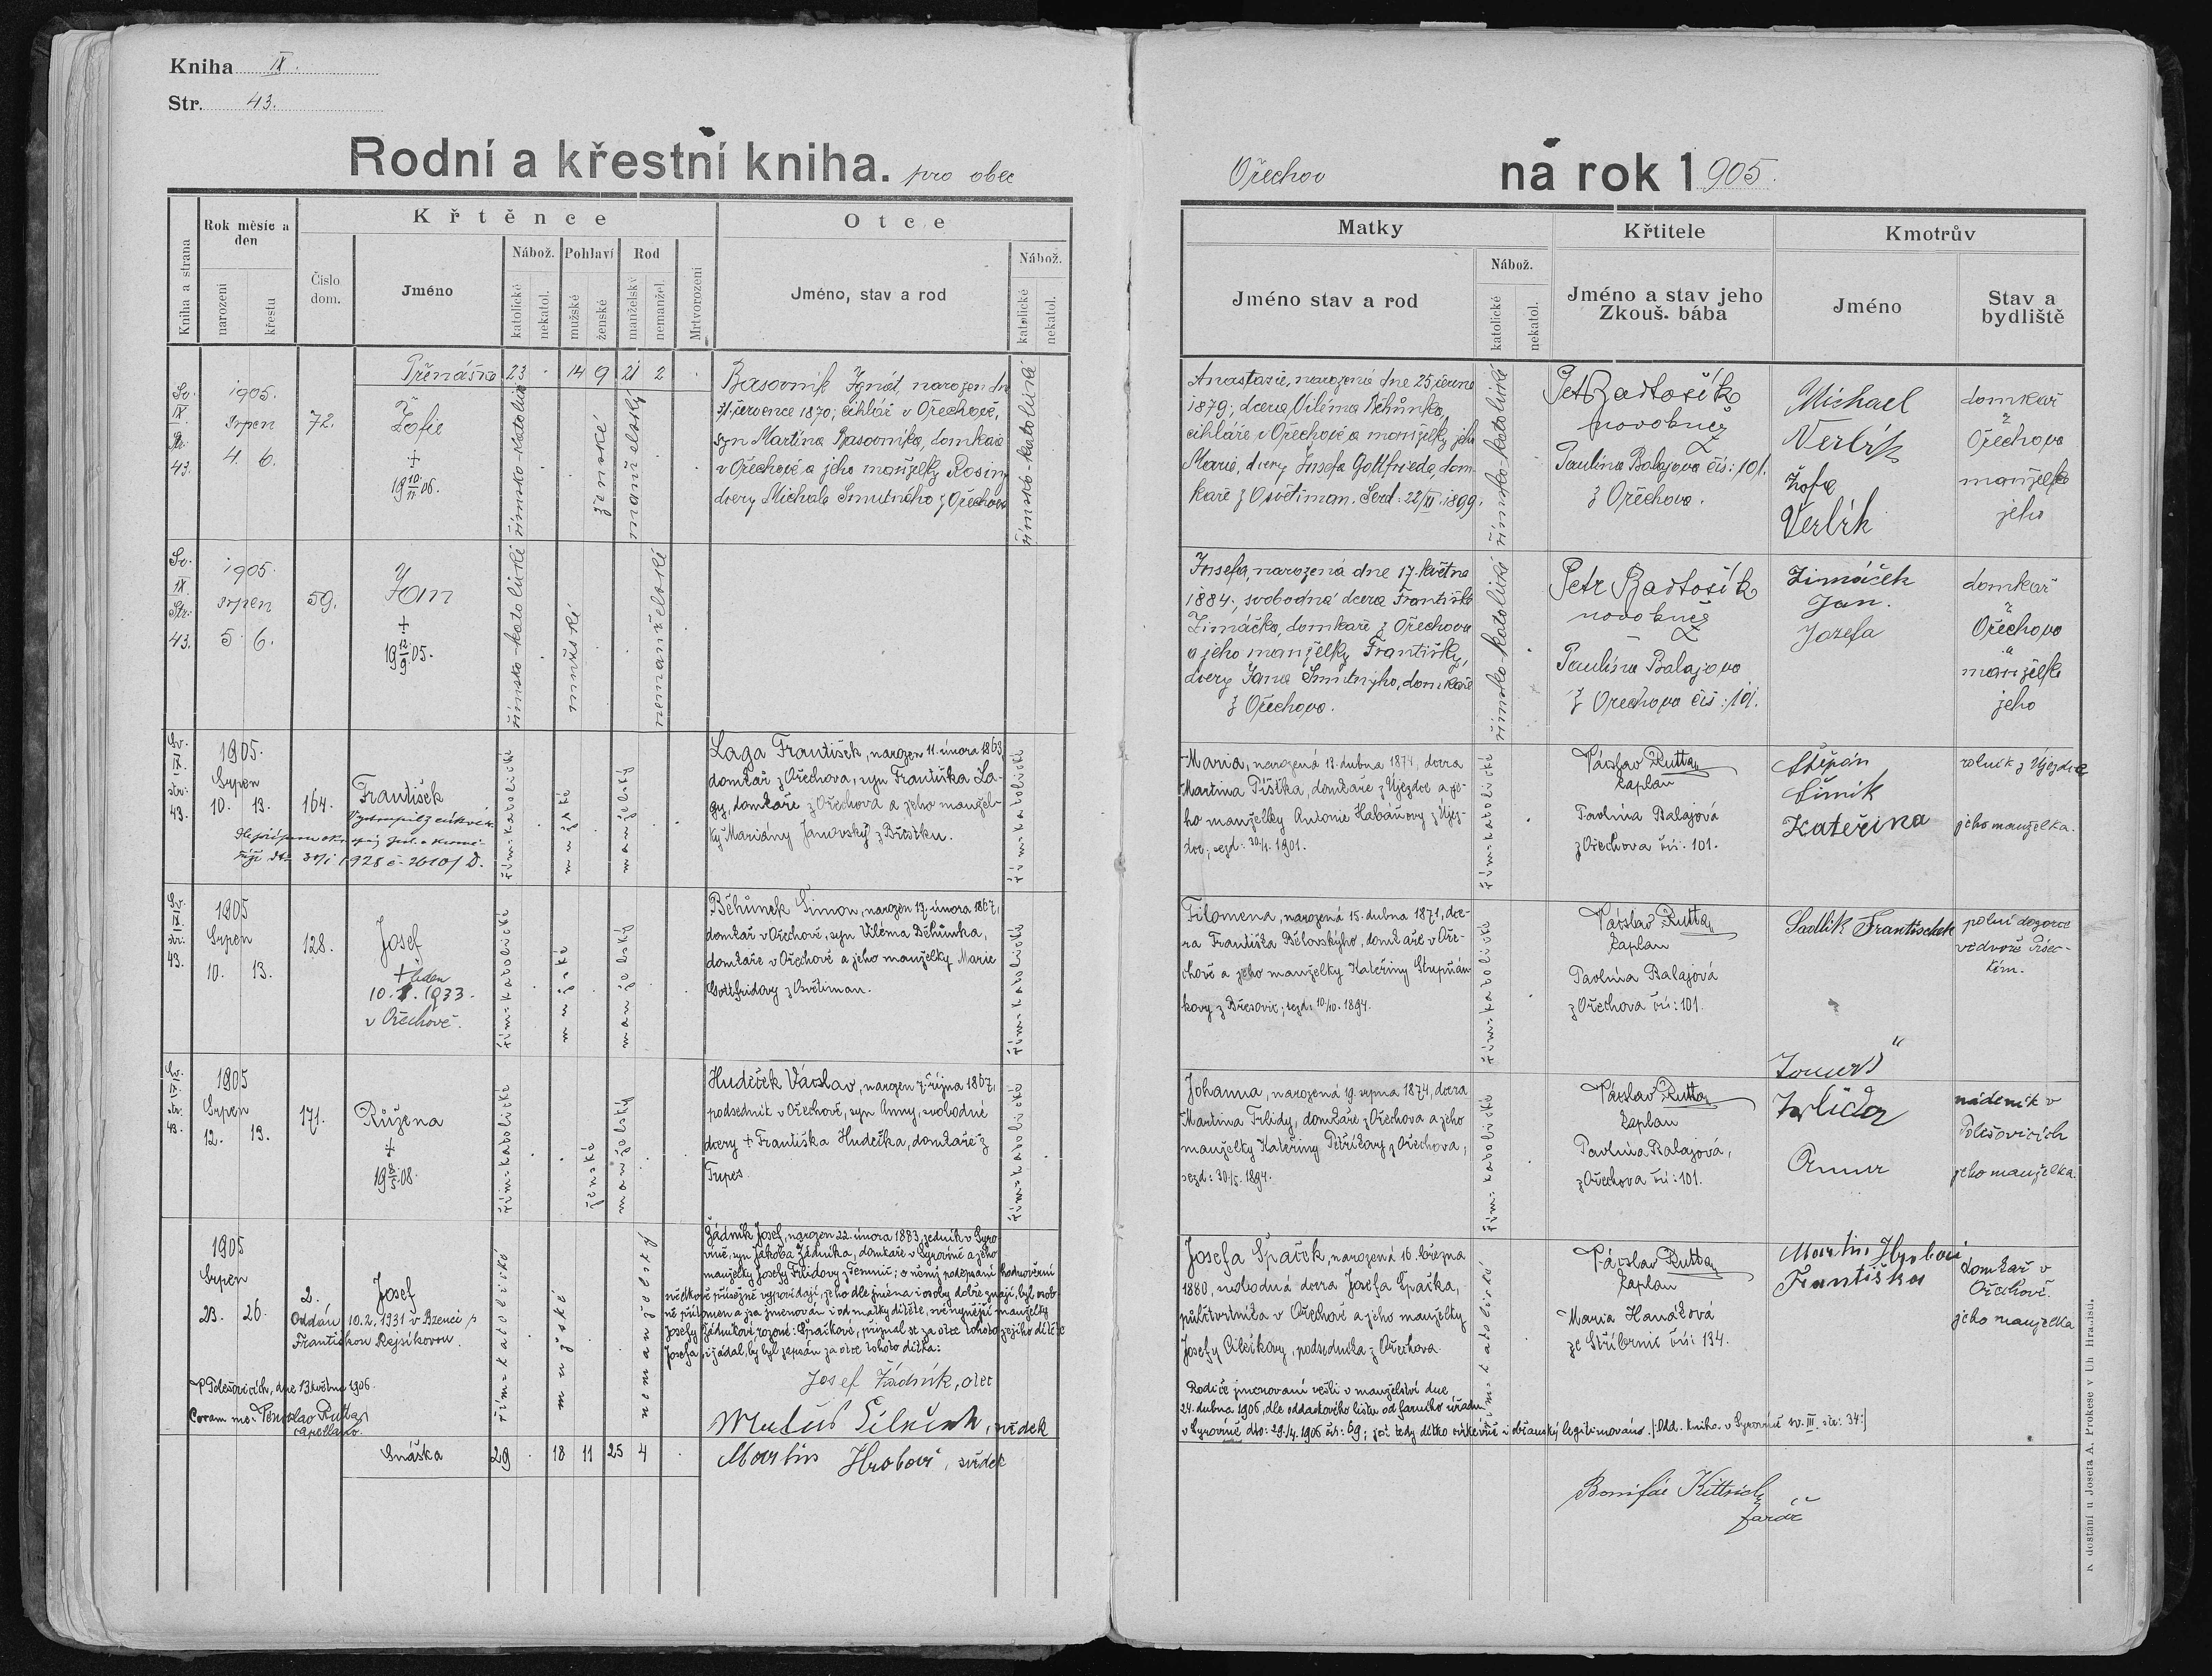 Kniha IX.
Str. 43.
Rodní a křestní kniha. pro obec
Ořechov na rok 1905.
Kniha a strana
Rok měsíc a den
narození
křestu
Číslo dom.
Křtěnce
Jméno
Nábož.
katolické
nekatol.
Pohlaví
mužské
ženské
Rod
manželský
nemanžel.
Mrtvorození
Otce
Jméno, stav a rod
Nábož.
katolické
nekatol.
Matky
Jméno stav a rod
Nábož.
katolické
nekatol.
Křtitele
Jméno a stav jeho
Zkouš. bába
Kmotrův
Jméno
Stav a bydliště
Přenáška 23 14 9 21 2
Sv. IX. Str. 43.
1905.
Srpen
4. 6.
72.
Žofie
+
19 10/11 06.
římsko-katolické
ženské
manželský
Basovník Ignát, narozen dne
31. července 1870; cihlář v Ořechově,
syn Martina Basovníka, domkaře
v Ořechově a jeho manželky Rosiny
dcery Michala Smutného z Ořechova
římsko-katolické
Anastasie, narozená dne 25. června
1879; dcera Viléma Běhůnka,
cihláře v Ořechově a manželky jeho
Marie, dcery Josefa Gottfrieda, dom-
kaře z Osvětiman.
římsko-katolické
Petr Bartošík
Paulina Balajova čís: 101.
z Ořechova.
Michael
Verbík
Žofie
Verbík
domkař
z
Ořechova
manželka
jeho
Sv. IX. Str: 43.
1905.
srpen
5. 6.
59.
Jan
+
19 12/9 05.
římsko-katolické
mužské
nemanželské
Josefa, narozená dne 17. května
1884., svobodná dcera Františka
Zimáčka, domkaře z Ořechova
a jeho manželky Františky,
dcery Jana Smutnýho, domkaře
z Ořechova.
římsko-katolické
Petr Bartošík
Paulína Balajova
z Ořechova čís: 101.
Zimáček
Jan.
Jozefa
domkař
z
Ořechova
a
manželka
jeho
Sv. IX. str: 43.
1905.
Srpen
10. 13.
164.
František
Vystoupil z církve
1928 č. 2610/D.
řím=katolické
mužské
manželský
Laga František, narozen 11. února 1863,
domkař z Ořechova, syn Františka La-
gy, domkaře z Ořechova a jeho manžel-
ky Mariány Janovský z Břestku.
řím=katolické
Maria, narozená 13. dubna 1874, dcera
Martina Pištka, domkaře z Újezdce a je-
ho manželky Antonie Habáňovy z Újez-
dce; sezd: 30/4. 1901.
řím=katolické
Václav Rutta,
kaplan
Pavlína Balajová
z Ořechova čís. 101.
Štěpán
Šimík
Kateřina
rolník z Újezdce
jeho manželka.
Sv. IX. str: 43.
1905
Srpen
10. 13.
128.
Josef
+ leden
10. 1. 1933.
v Ořechově.
řím=katolické
mužské
manželský
Běhůnek Šimon, narozen 17. února 1867,
domkař v Ořechově, syn Viléma Běhůnka,
domkaře v Ořechově a jeho manželky Marie
Gottfridovy z Osvětiman.
řím=katolické
Filomena, narozená 15. dubna 1871, dce-
ra Františka Bělovskýho, domkaře v Oře-
chově a jeho manželky Kateřiny Štěpán
kovy z Březovic; sezd: 10/10. 1894.
řím=katolické
Václav Rutta,
kaplan
Pavlína Balajová
z Ořechova čís: 101.
Sadlík Františček
polní dozorce
ve dvoře
Sv. IX. str: 43.
1905
Srpen
12. 13.
171.
Růžena
+
19 8/5 08.
řím=katolické
ženské
manželský
Hudeček Václav, narozen 7. října 1867,
podsedník v Ořechově, syn Anny, svobodné
dcery + Františka Hudečka, domkaře z
Tupes.
řím=katolické
Johanna, narozená 19. srpna 1874, dcera
Martina Trlidy, domkaře z Ořechova a jeho
manželky Kateřiny Petříkovy z Ořechova,
sezd: 30/5. 1894.
řím=katolické
Václav Rutta,
kaplan
Pavlína Balajová,
z Ořechova čís: 101.
nádeník v
Polešovicích
jeho manželka.
1905
Srpen
23. 26.
2.
Josef
Oddán 10.2.1931 v Bzenci s
Františkou Rejsíkovou.
řím=katolické
mužské
nemanželský
Žádník Josef, narozen 22. února 1883, sedník v Syro-
víně, syn Jakoba Žádníka, domkaře v Syrovíně a jeho
manželky Josefy Trlidovy z Temnic; o němž podepsaní hodnověrní
svědkové přísežně vypovídají, že ho dle jména i osoby dobře znají, byl osob-
ně přítomen a jsa jmenován i od matky dítěte, své nynější manželky
Josefy Žádníkové, rozené: Špačkové, přiznal se za otce tohoto jejího dítěte
Josefa i žádal, by byl zapsán za otce tohoto dítka:
Josef Žádník, otec
svědek
Martin Hrobař, svědek
V Polešovicích, dne 13. května 1906.
Coram me: Venceslao Rutta,
capellano.
Josefa Špaček, narozená 16. března
1880, svobodná dcera Josefa Špačka,
půlčtvrtníka v Ořechově a jeho manželky
Josefy Cilečkovy, podsedníka z Ořechova.
Rodiče jmenovaní vešli v manželství dne
24. dubna 1906, dle oddacího listu od farního úřadu
v Syrovíně dto: 29./4. 1906 čís: 69; jest tedy dítko církevně i občansky legitimováno. /: Odd. kniha v Syrovíně sv. III. str: 34:/
řím=katolické
Václav Rutta,
kaplan
Maria Hanáková
ze Stříbrnic čís: 134.
Martin Hrobař
Františka
domkař v
Ořechově.
jeho manželka
Snáška 29 18 11 25 4
Bonifác Kittrich
farář
K dostání u Josefa A. Prokeše v Uh Hradišti.